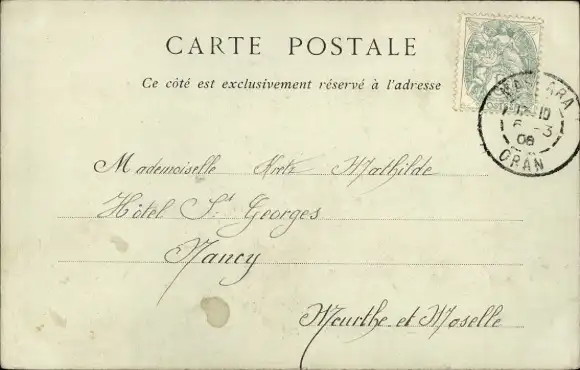 CARTE POSTALE
Ce côté est exclusivement réservé à l'adresse
MASCARA
6 - 3
06
ORAN
Mademoiselle Kretz Mathilde
Hôtel St Georges
Nancy
Meurthe et Moselle